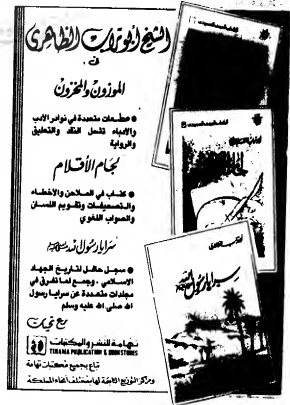 الشيخ أبو تراب الظاهري
في
الموزون والمخزون
● مقطعات متعددة في نوادر الأدب
والأدباء تشمل النقد والتعليق
والرواية
لجام الأقلام
● كتاب في الملاحن والأخطاء
والتصحيفات وتقويم اللسان
والصواب اللغوي
سرايا رسول الله
● سجل حافل لتاريخ الجهاد
الاسلامي . وجمع لما تفرق في
مجلدات متعددة عن سرايا رسول
الله صلى الله عليه وسلم
مع تحيات
تهامة للنشر والمكتبات
TIHAMA PUBLICATION & BOOKSTORES
تباع بجميع مكتبات تهامة
ومراكز التوزيع التابعة لها بمختلف أنحاء المملكة
لجام الأقلام
سرايا رسول الله